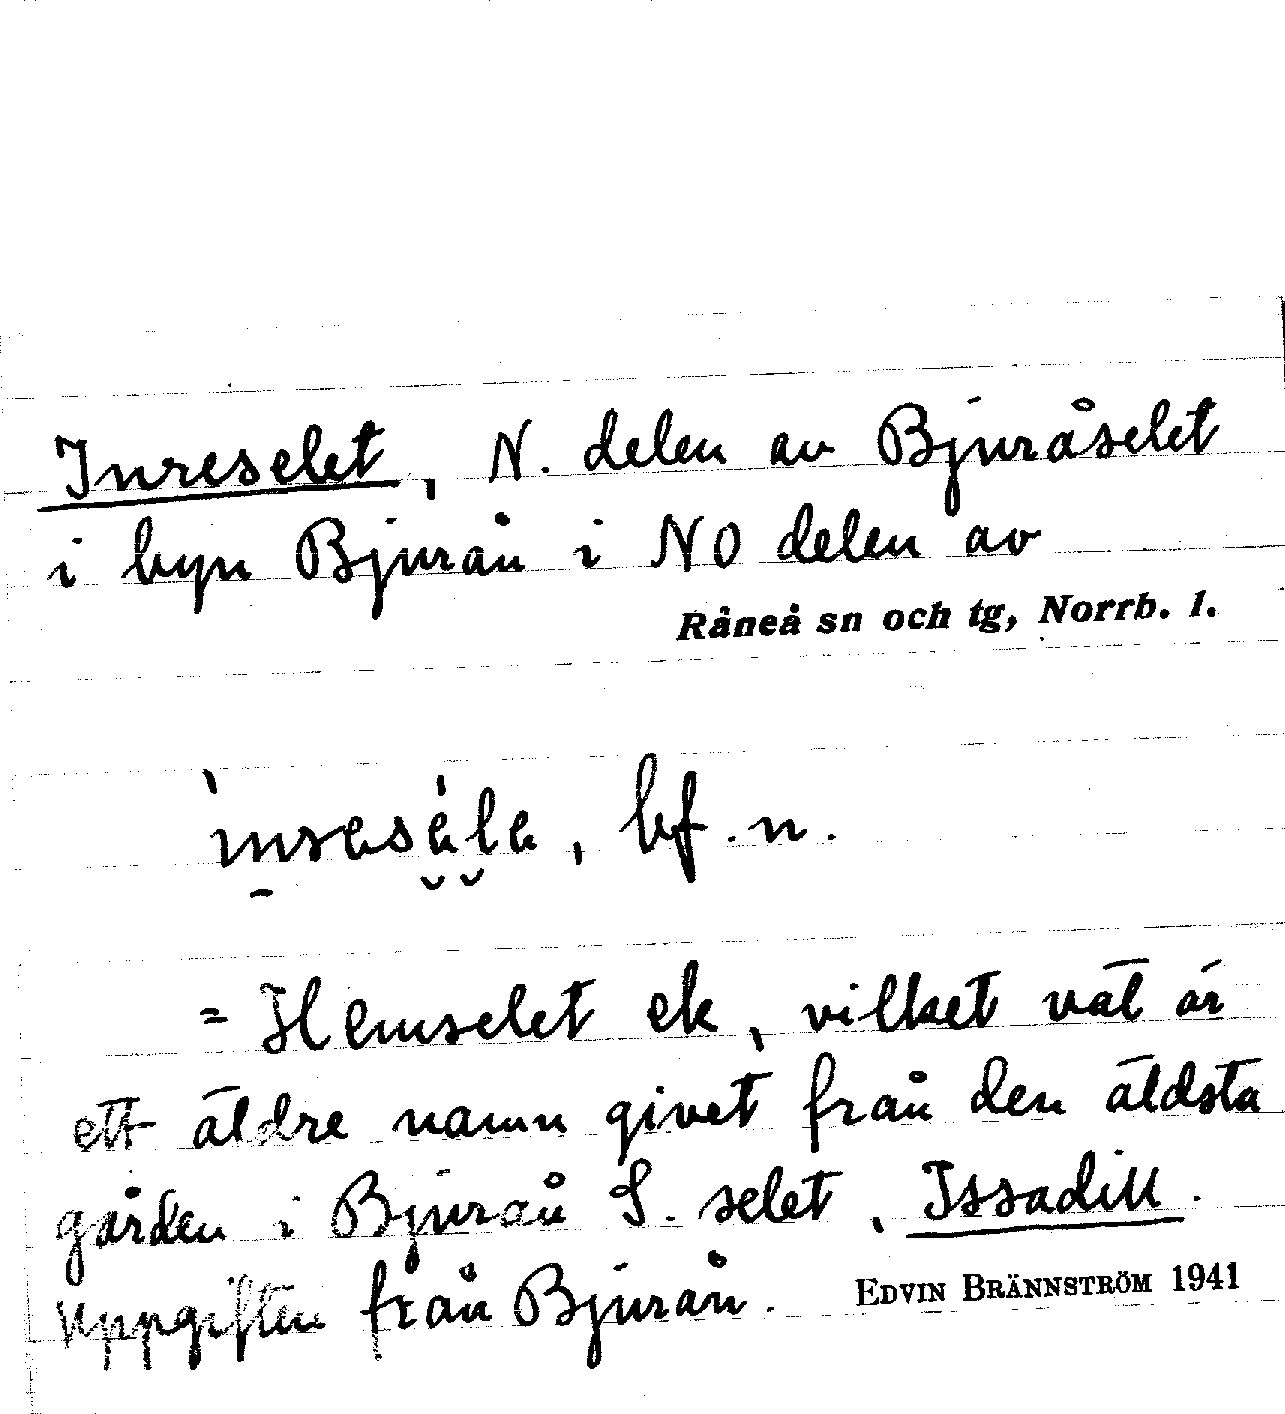 Inreselet, N. delen av Bjuråselet
i byn Bjurån i NO delen av
Råneå sn och tg, Norrb. l.
bf. n.
= Hemselet ek, vilket väl är
ett äldre namn givet från den äldsta
gården i Bjurån S. selet, Issadill.
Uppgiften från Bjurån. EDVIN BRÄNNSTRÖM 1941